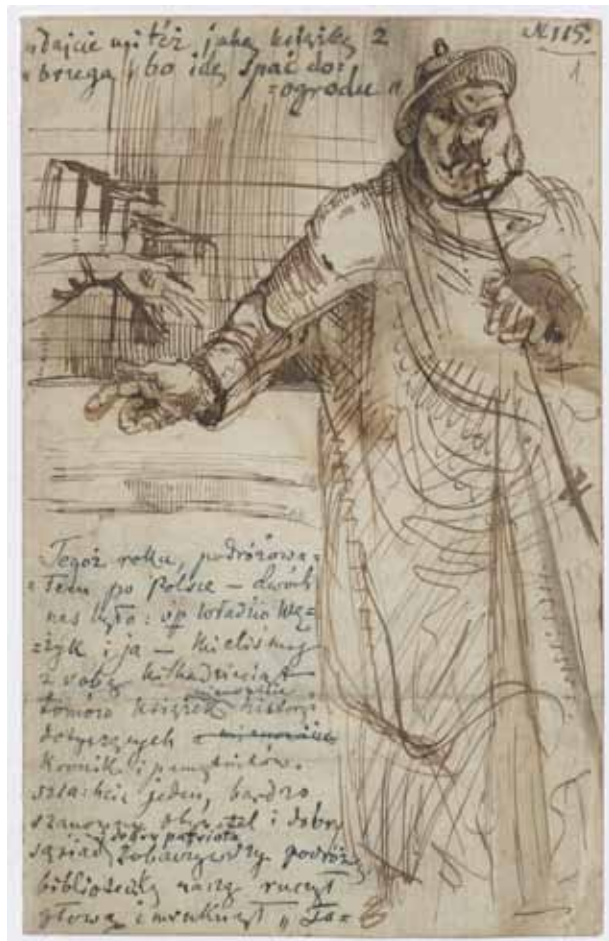 „Dajcie mi też jaką książkę z
„brzega, bo idę spać do=
=ogrodu"
N 115.
1.
Tegoż roku, podróżowa=
=łem po Polsce – dwóch
nas było: śp Władzio Wę=
=żyk i ja – Mieliśmy
z sobą kilkadziesiąt
tomów książek history
dotyczących
Kronik i pamiętników.
szlachcic jeden, bardzo
szanowny obywatel i dobry
dobry patriota
sąsiad, zobaczywszy podróż
biblioteczkę naszą ruszył
głową i mruknął „Ta=